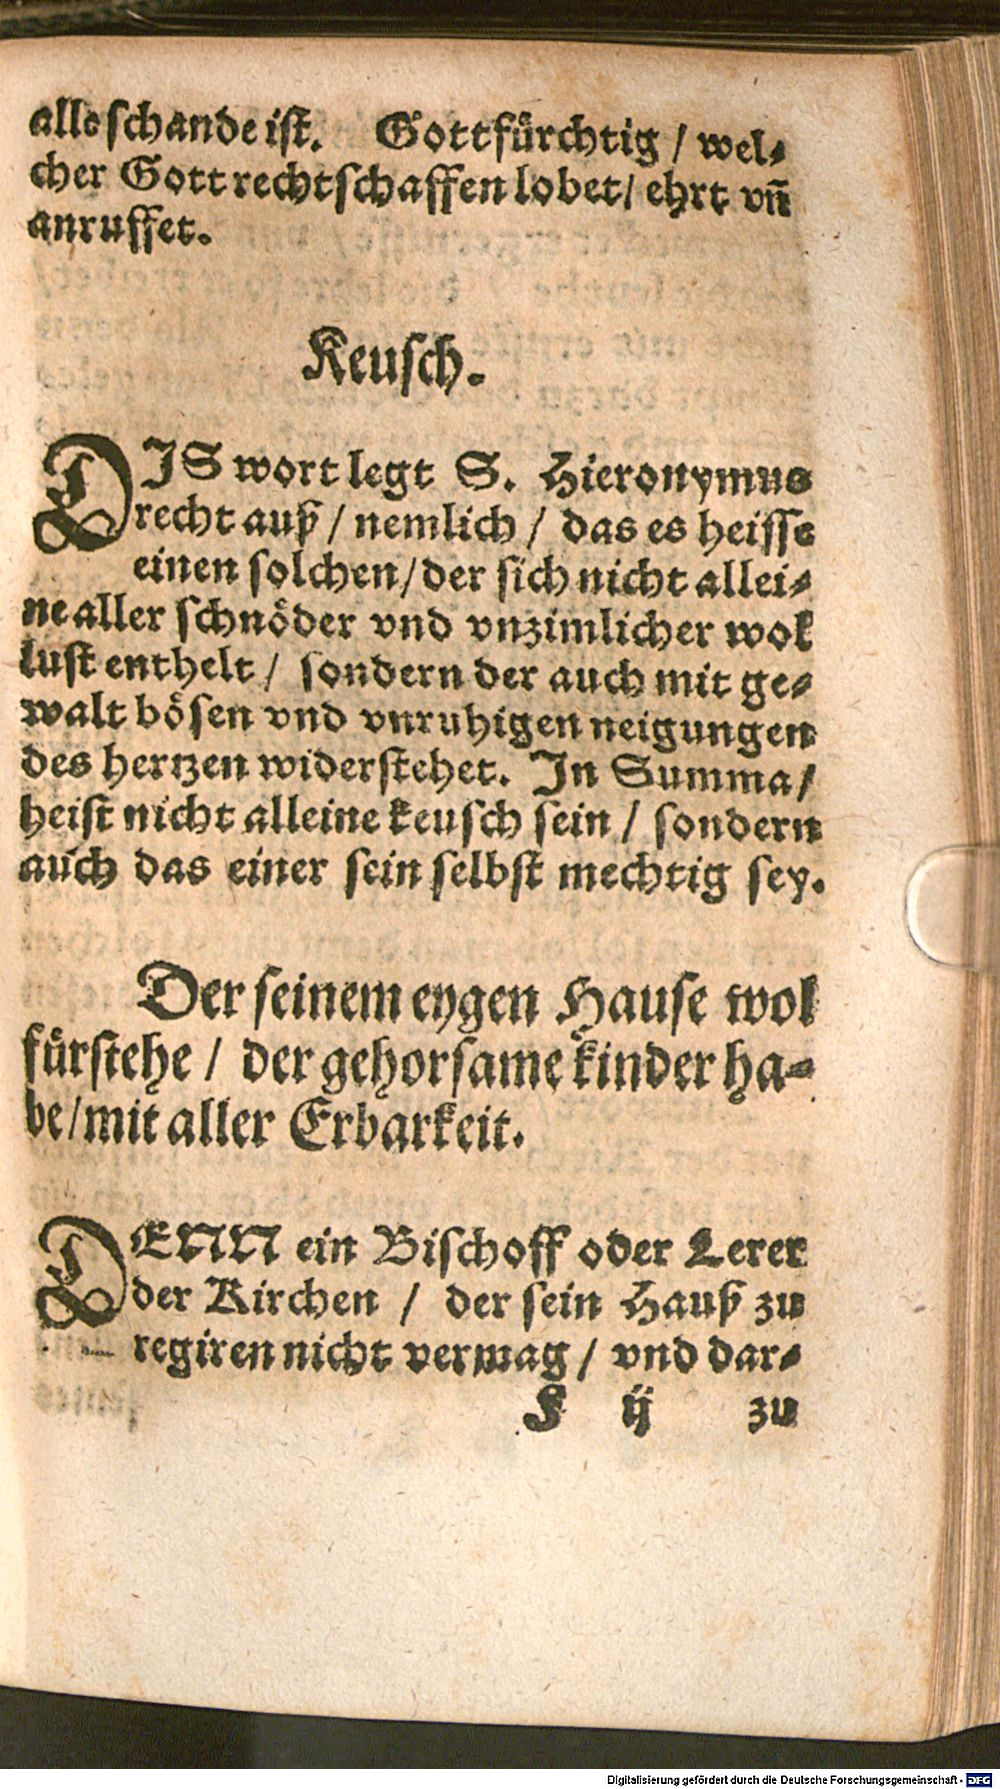 alle schande ist. Gottfürchtig / wel⸗
cher Gott rechtschaffen lobet / ehrt vñ
anruffet.
Keusch.
DIS wort legt S. Hieronymus
recht auß / nemlich / das es heisse
einen solchen / der sich nicht allei⸗
ne aller schnöder vnd vnzimlicher wol
lust enthelt / sondern der auch mit ge⸗
walt bösen vnd vnruhigen neigungen
des hertzen widerstehet. In Summa /
heist nicht alleine keusch sein / sondern
auch das einer sein selbst mechtig sey.
Der seinem eygen Hause wol
fürstehe / der gehorsame kinder ha⸗
be / mit aller Erbarkeit.
DENN ein Bischoff oder Lerer
der Kirchen / der sein Hauß zu
regiren nicht vermag / vnd dar⸗
F ij zu
Digitalisierung gefördert durch die Deutsche Forschungsgemeinschaft - DFG